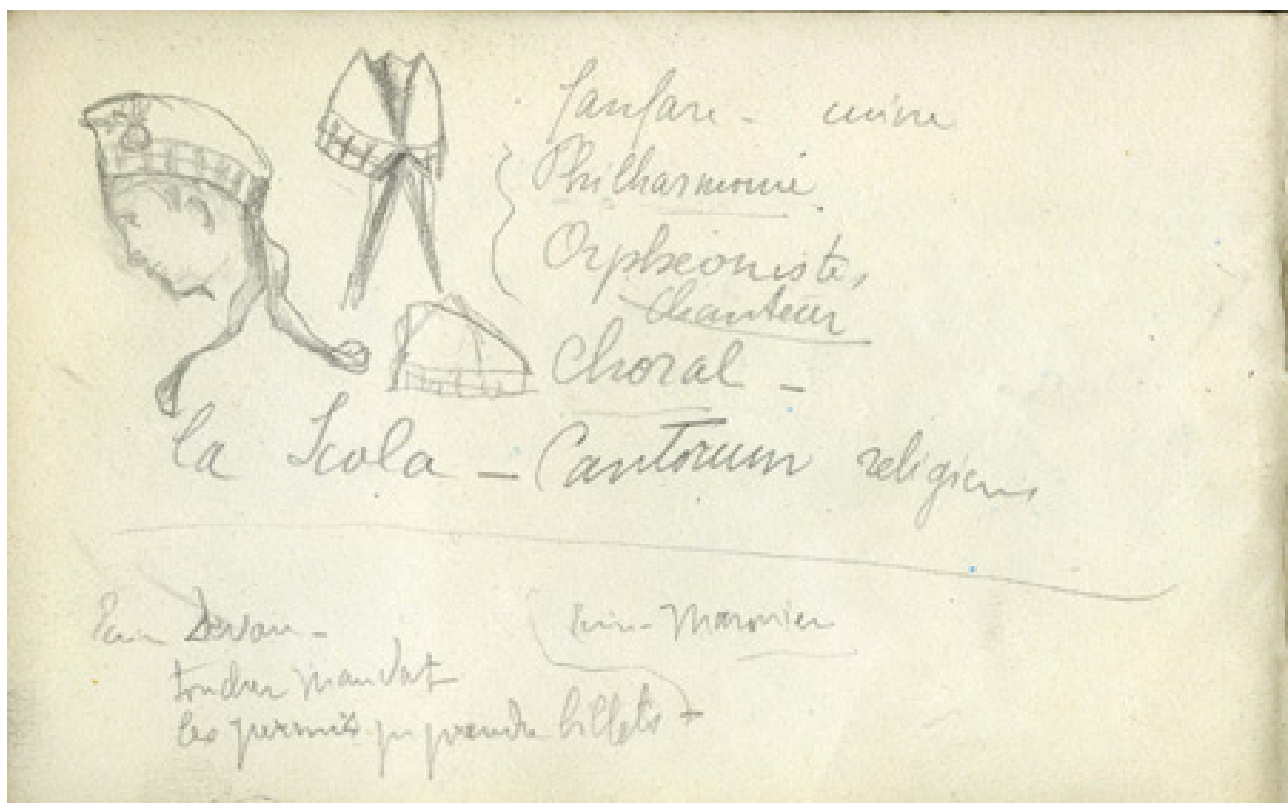 fanfare - cuivre
Philharmonie
Orphéoniste,
chanteur
Choral -
la Scola - Cantorum religieux
toucher mandat
les permis pr prendre billets